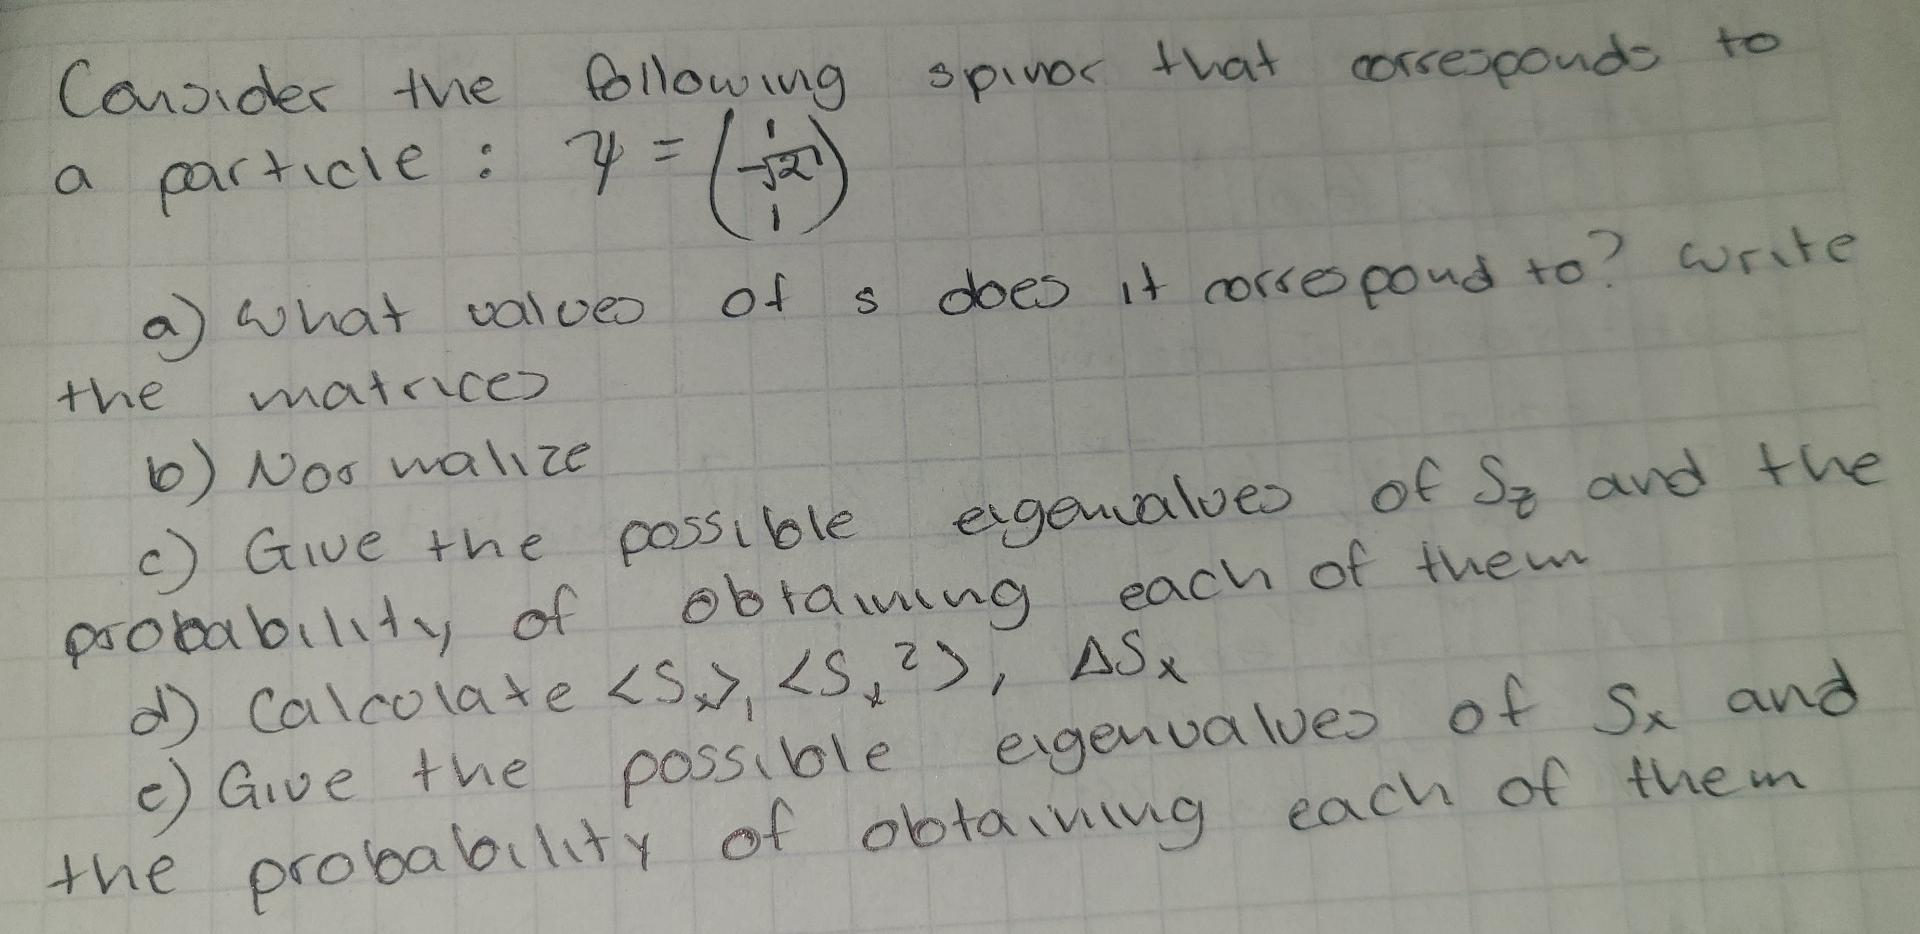 Consider the following spinor that corresponds to
a particle : ψ = (1 -√2 1)
a) What values of s does it correspond to? Write
the matrices
b) Normalize
c) Give the possible eigenvalues of Sz and the
probability of obtaining each of them
d) Calculate <Sx>, <Sx²>, ΔSx
e) Give the possible eigenvalues of Sx and
the probability of obtaining each of them